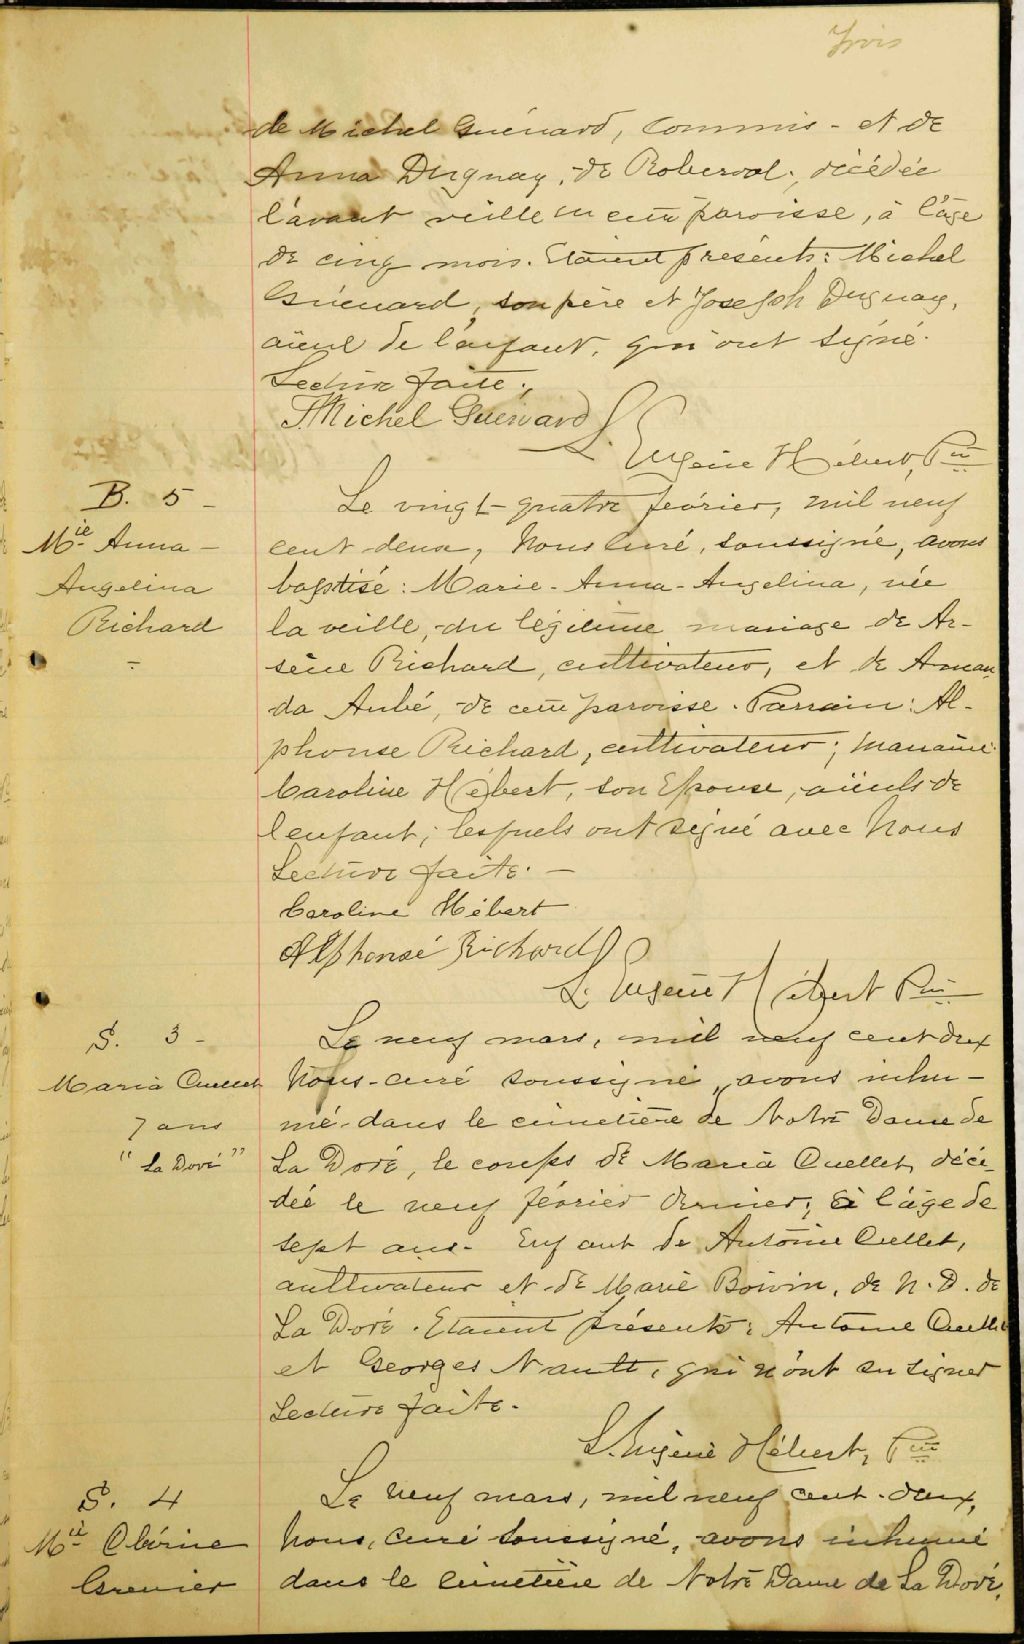 Trois
de Michel Guénard, commis - et de
Anna Duguay, de Roberval, décédée
l'avant veille en cette paroisse, à l'âge
de cinq mois. Etaient présents: Michel
Guénard, son père et Joseph Duguay,
aïeul de l'enfant, qui ont signé.
Lecture faite.
Michel Guénard
L. Eugène Hébert, Ptre
B. 5 -
Mie Anna -
Angelina
Richard
-
Le vingt-quatre février, mil neuf
cent-deux, Nous curé, soussigné, avons
baptisé: Marie-Anna-Angelina, née
la veille, du légitime mariage de Ar-
sène Richard, cultivateur, et de Aman-
da Aubé, de cette paroisse. Parrain: Al-
phonse Richard, cultivateur; marraine
Caroline Hébert, son Epouse, aïeuls de
l'enfant; lesquels ont signé avec Nous
Lecture faite. -
Caroline Hébert
Alphonsé Richard
L. Eugène Hébert Ptre
S. 3 -
Maria Ouellet
7 ans
"La Doré"
Le neuf mars, mil neuf cent deux
Nous-curé soussigné, avons inhu-
mé dans le cimetière de Notre Dame de
La Doré, le corps de Maria Ouellet, décé-
dée le neuf février dernier, à l'âge de
sept ans - Enfant de Antoine Ouellet,
cultivateur et de Marie Boivin, de N. D. de
La Doré. Etaient présents: Antoine Ouellet
et Georges Nault, qui n'ont su signer
Lecture faite.
L. Eugène Hébert, Ptre
S. 4
Mie
Grenier
Le neuf mars, mil neuf cent-deux,
Nous, curé soussigné, avons inhumé
dans le cimetière de Notre Dame de La Doré,